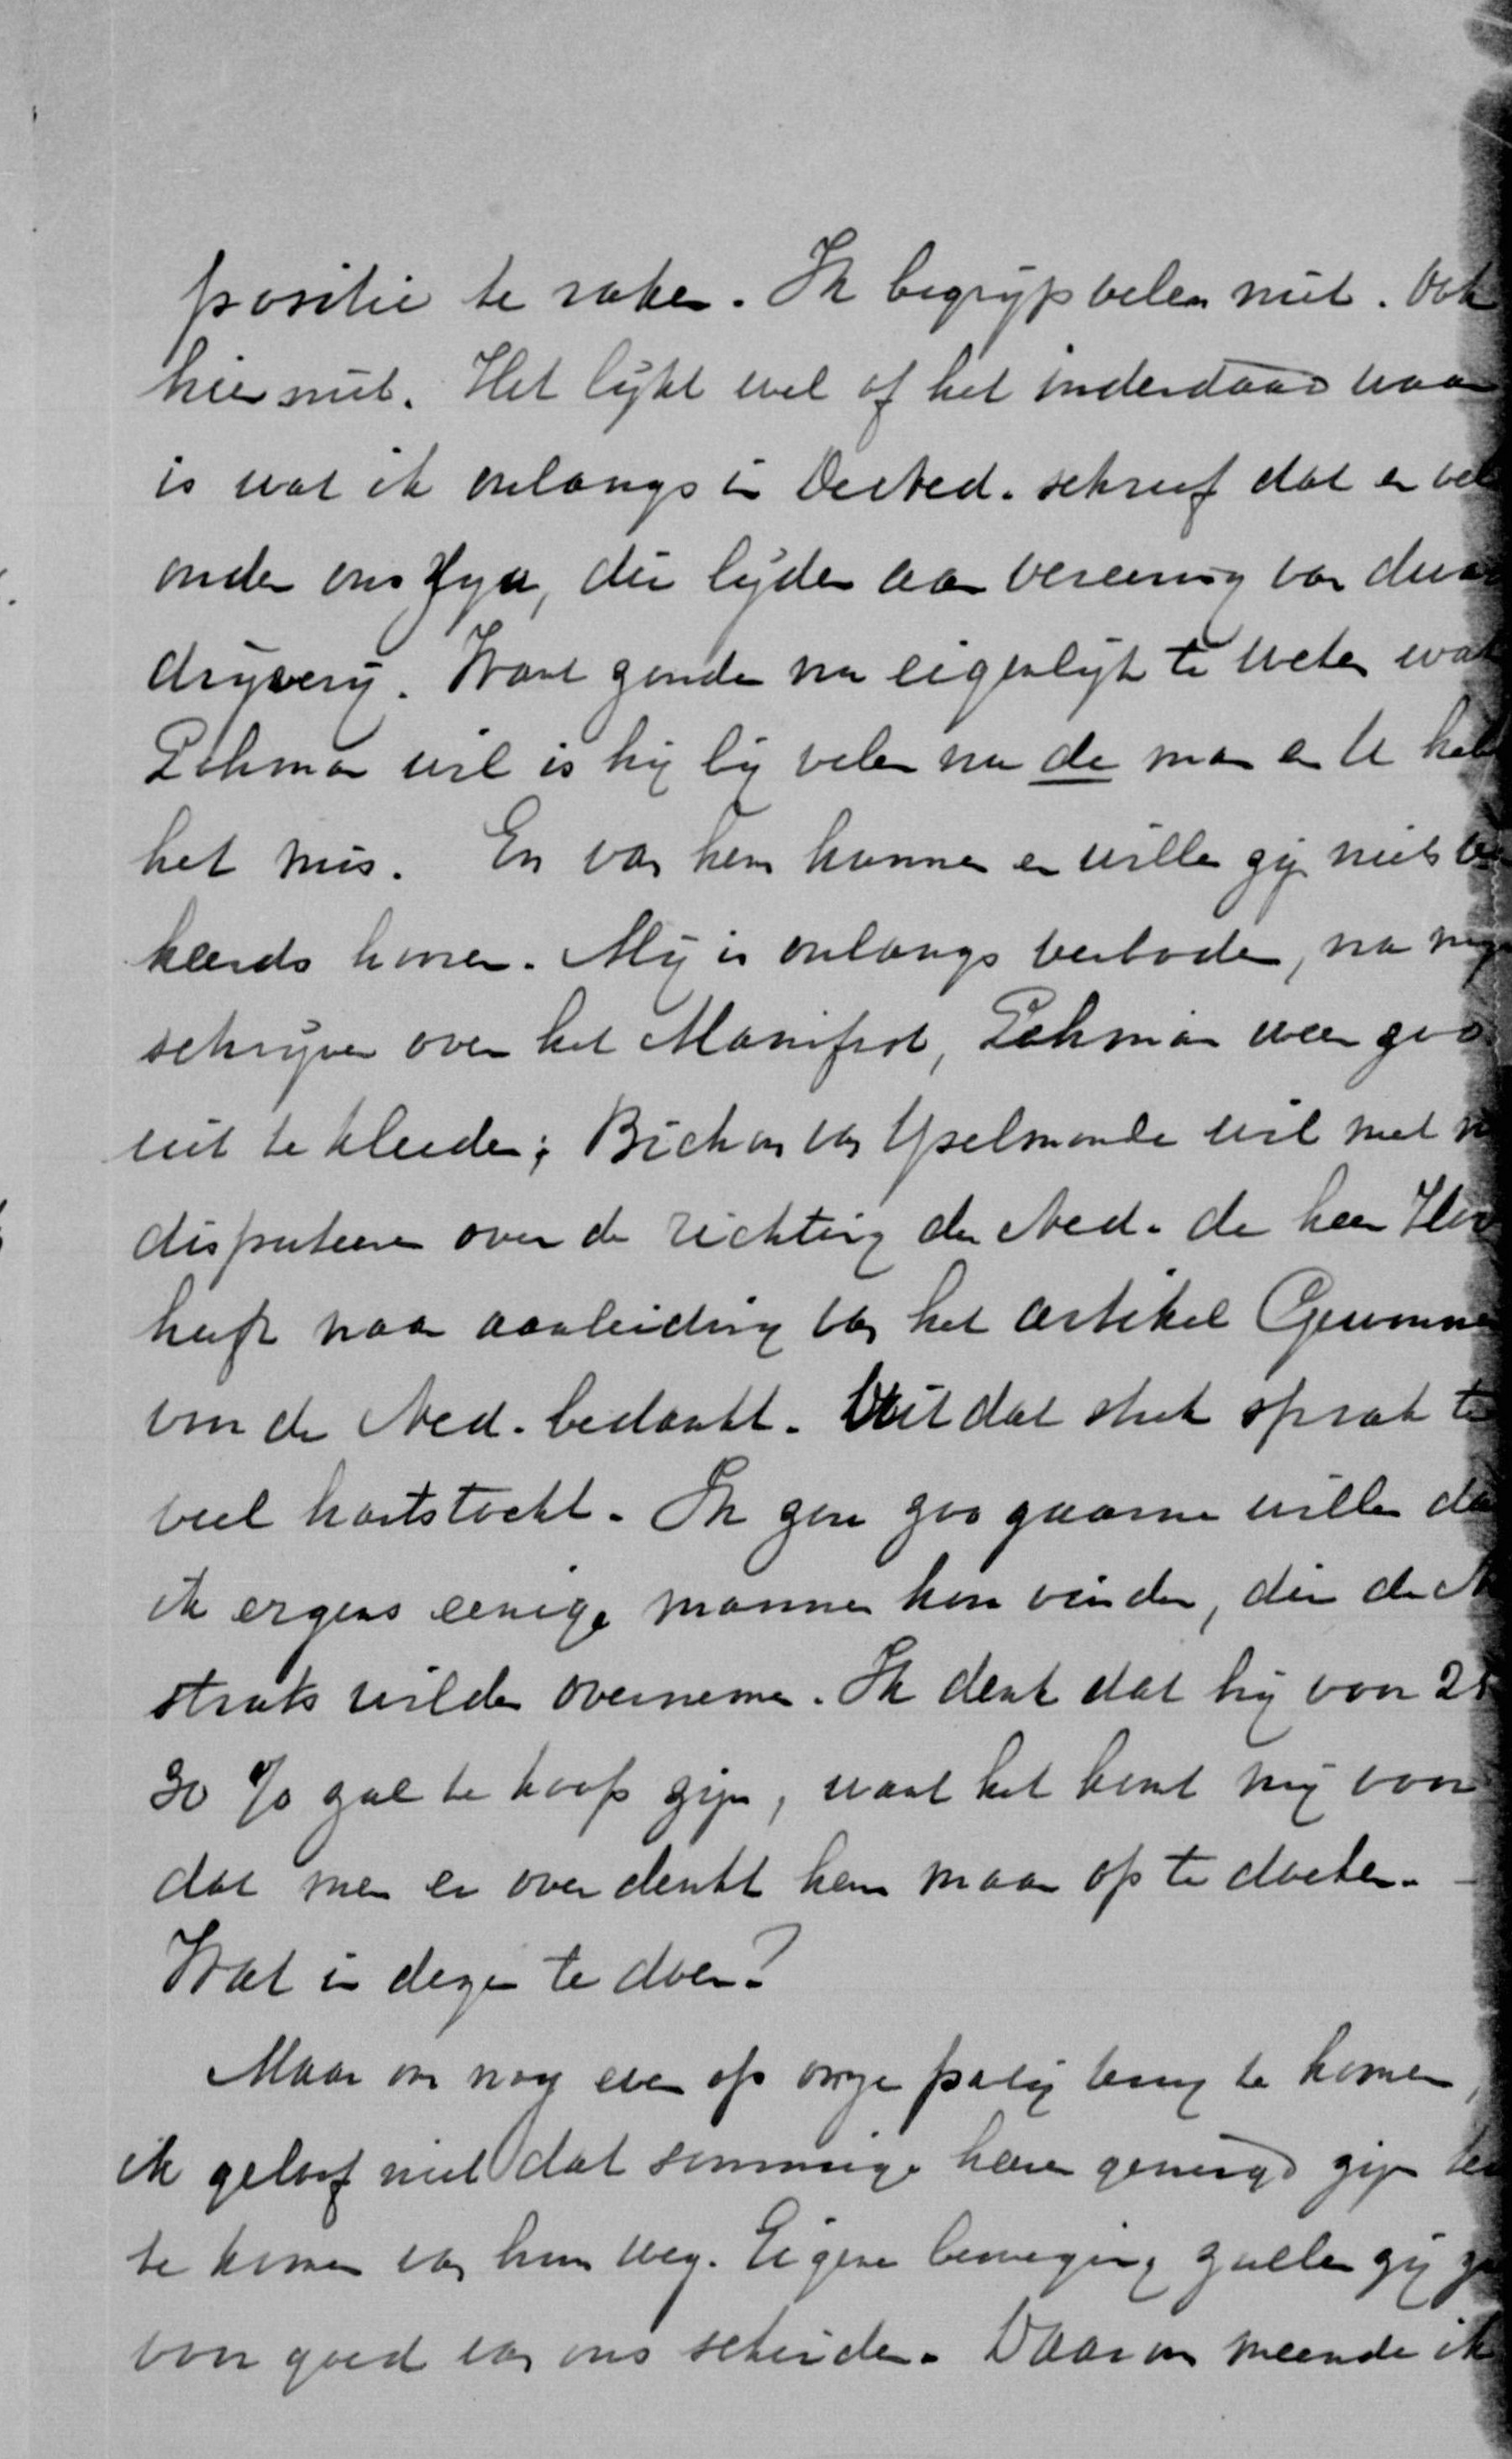 positie te raken. Ik begrijp velen niet. Ook
hier niet. Het lijkt wel of het inderdaad waar
is wat ik onlangs in De Ned. schreef dat er vel
onder ons zijn, die lijden aan vereering van
drijverij. Want zonder nu eigenlijk te weten wat
Lohman wil is hij bij velen nu de man en U heb
het mis. En van hem kunnen en willen zij niets
keerds hooren. Mij is onlangs verboden, na mijn
schrijven over het Manifest, Lohman weer zoo
uit te kleeden; Bichon van IJselmonde wil met
disputeeren over de richting der Ned. de heer
heeft naar aanleiding van het artikel Gewonnen
voor de Ned. bedankt. Uit dat stuk sprak te
veel hartstocht. Ik zou zoo gaarne willen dat
ik ergens eenige mannen kon vinden, die de
straks wilden overnemen. Ik denk dat hij voor 25
30 % zal te koop zijn, want het komt mij voor
dat men er over denkt hem maar op te doeken. -
Wat in dezen te doen?
Maar om nog even op onze partij terug te komen,
ik geloof niet dat sommige heeren geneigd zijn
te komen van hun weg. Eigener beweging zullen zij
voor goed van ons scheiden. Daarom meende ik